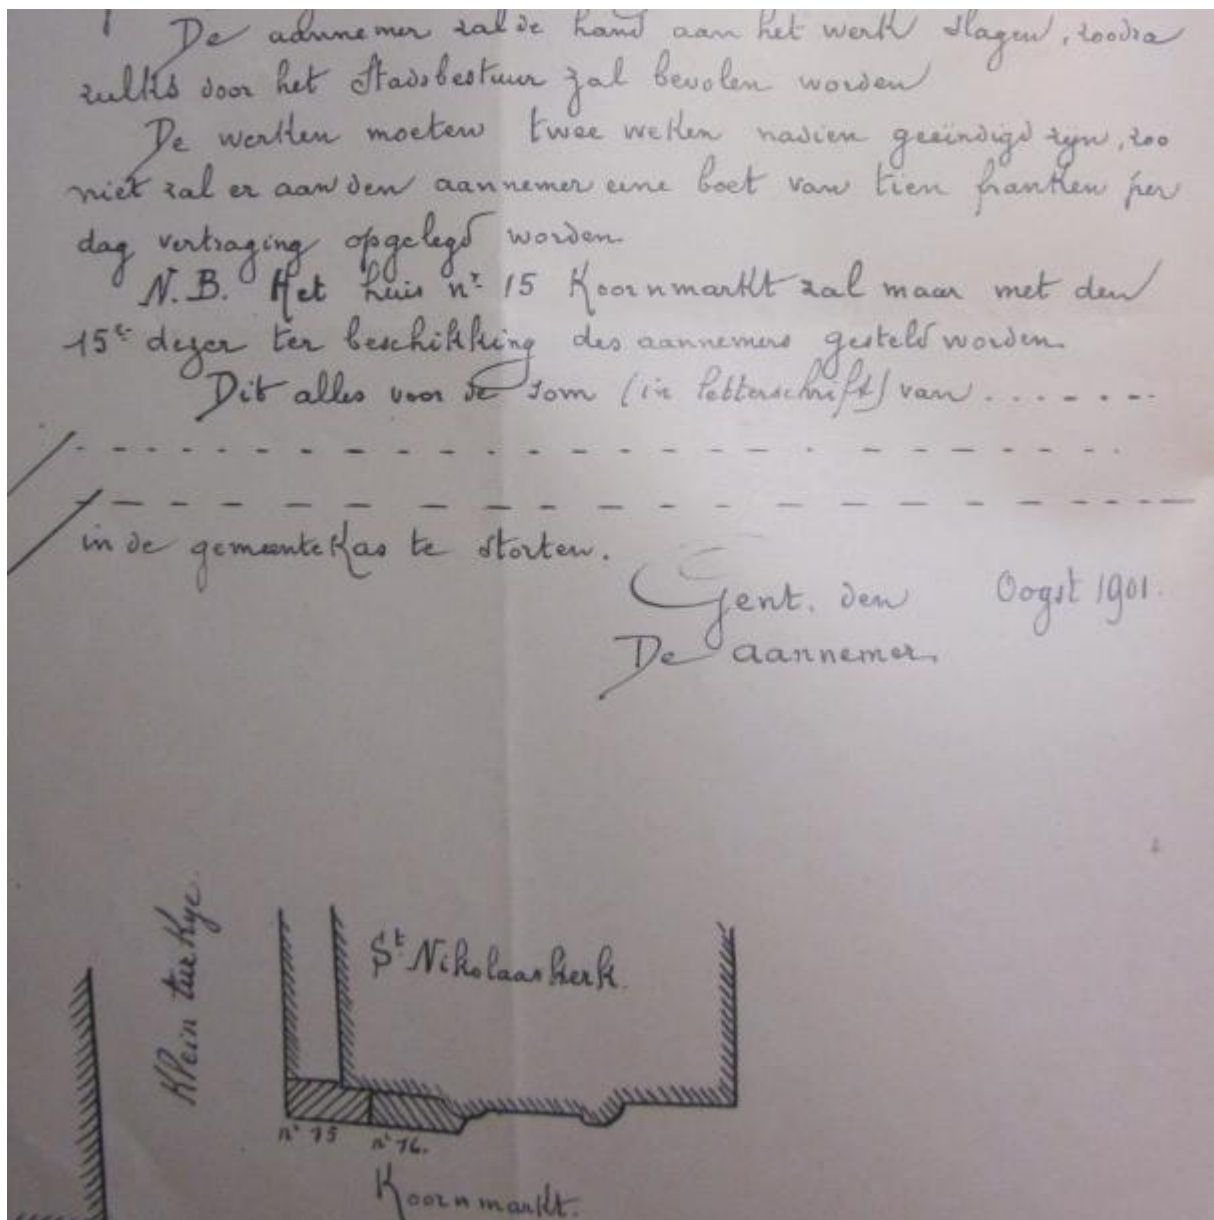 De aannemer zal de hand aan het werk slagen, zoodra
zulks door het Stadsbestuur zal bevolen worden
De werken moeten twee weken nadien geëindigd zijn, zoo
niet zal er aan den aannemer eene boet van tien franken per
dag vertraging opgelegd worden.
N.B. Het huis nr 15 Koornmarkt zal maar met den
15e dezer ter beschikking des aannemers gesteld worden.
Dit alles voor de som (in letterschrift) van . . . . - . -
in de gemeentekas te storten.
Gent. den Oogst 1901.
De aannemer.
Klein turkye.
St Nikolaaskerk.
nr 15
nr 16.
Koornmarkt.